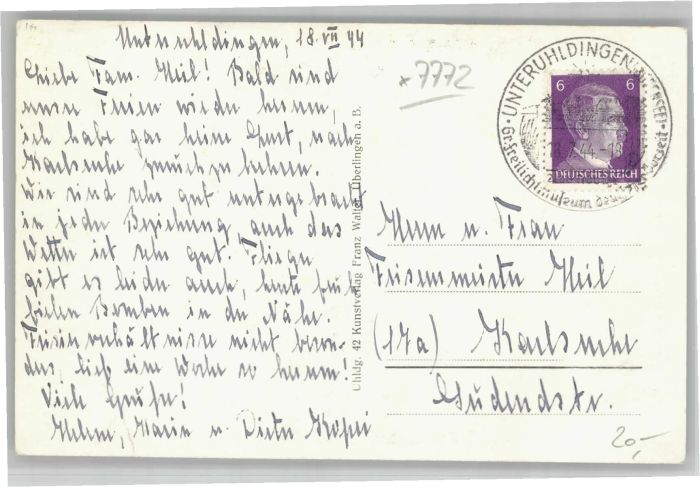 Unteruhldingen, 18. VII 44
Liebe Fam. Meil! Bald sind
unsre Ferien wieder herum,
ich habe gar keine Lust, nach
Karlsruhe zurück zu kehren.
Wir sind sehr gut untergebracht
in jeder Beziehung auch das
Wetter ist sehr gut. Flieger
gibt es leider auch, heute früh
fielen Bomben in der Nähe.
nicht beson-
ders lieb, eine Woche so herum!
Viele Grüße!
Helene, Maria u. Dieter
*7772
UNTERUHLDINGEN (BODENSEE)
18.7.44.-18
Freilichtmuseum deutscher Vorzeit
6 6
DEUTSCHES REICH
Uhldg. 42 Kunstverlag Franz Walter, Überlingen a. B.
Herrn u. Frau
Friseurmeister Meil
(17a) Karlsruhe
Südendstr.
20,-